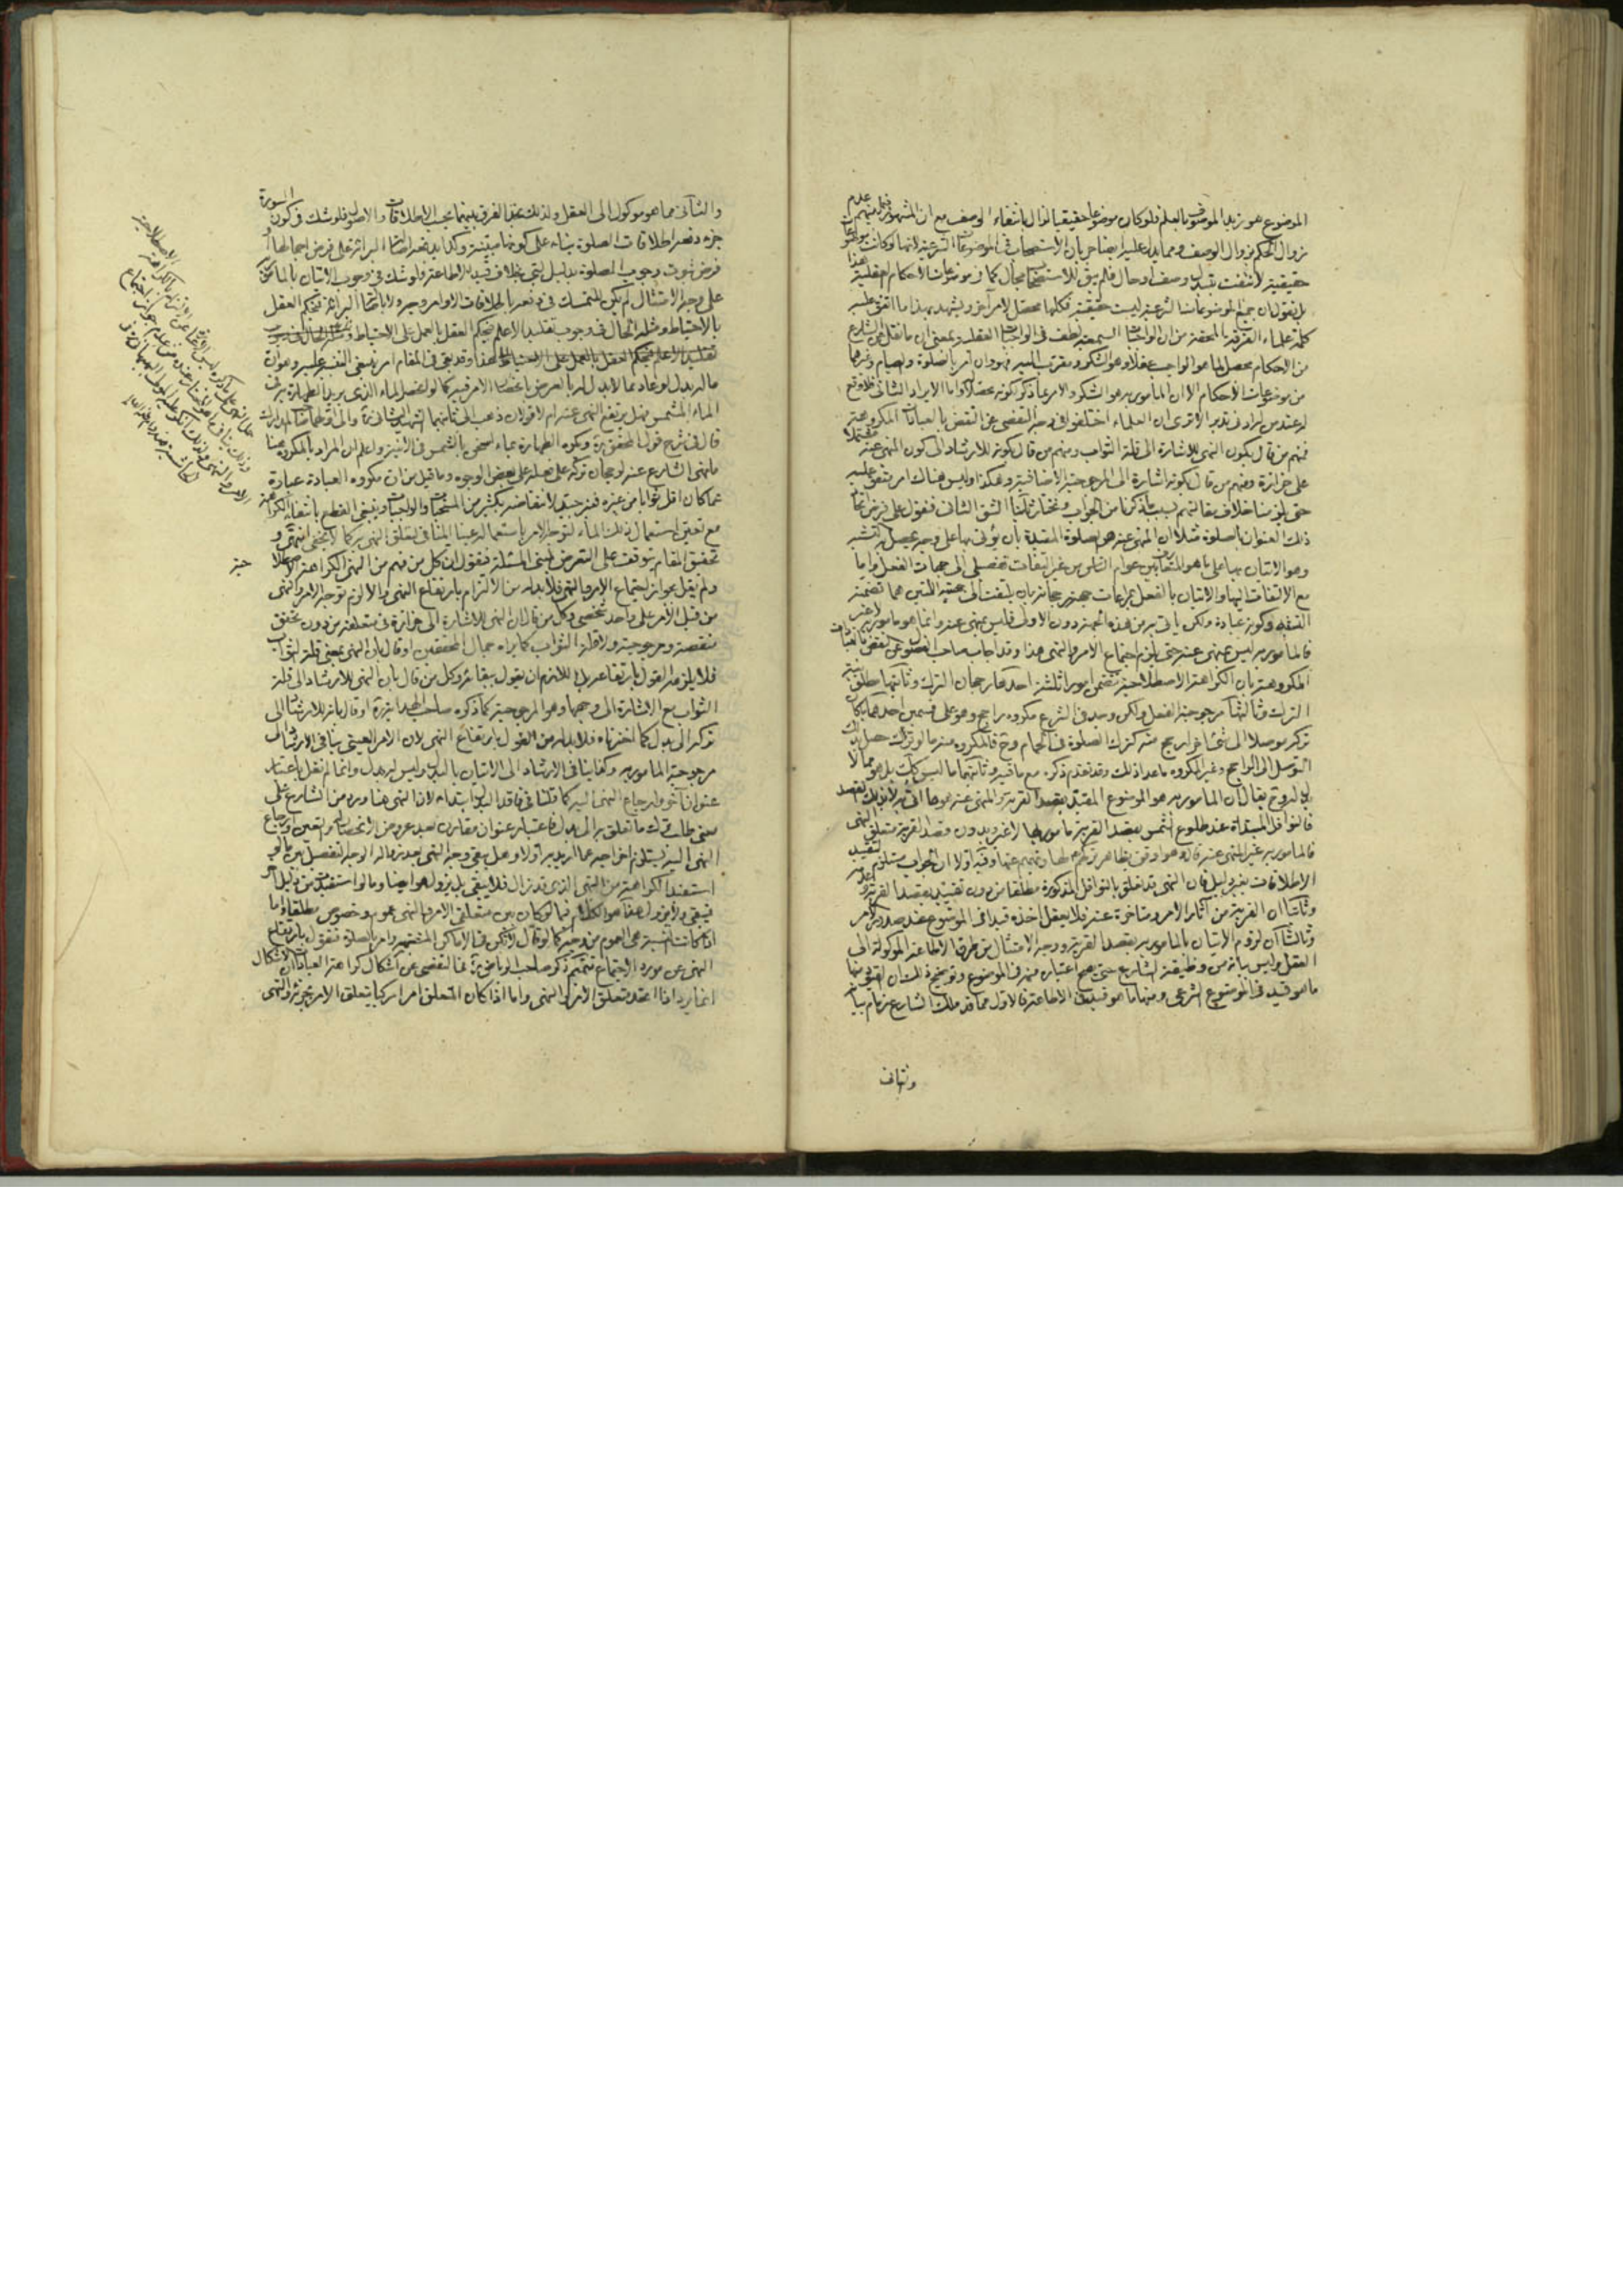 الموضوع هو زيد الموصوف بالعلم فلو كان موضوعا حقيقيا لزال بانتفاء الوصف مع ان المشهور عدم
زوال الحكم بزوال الوصف ومما يدل عليه ايضا جريان الاستصحاب في الموضوعات الشرعية لانها لو كانت
حقيقية لانتفت بتبدل وصف او حال فلم يبق للاستصحاب مجال كما في موضوعات الاحكام العقلية
بل نقول ان جميع الموضوعات الشرعية ليست حقيقية فكلها محصل لامر آخر ويشهد بهذا ما اتفق عليه
كلمة علماء الفرقة المحقة من ان الواجبات السمعية لطف في الواجبات العقلية بمعنى ان ما تعلق من الشارع
من الاحكام محصل لما هو الواجب عقلا وهو الشكر ومقرب اليه فهو وان امر بالصلوة والصيام وغيرهما
من موضوعات الاحكام الا ان المأمور به هو الشكر والامر بما ذكر لكونه محصلا واما الايراد الثاني فلا وقع
له عند من له ادنى تدبر الا ترى ان العلماء اختلفوا في وجه التفصي عن النقض بالعبادات المكروهة
فمنهم من قال بكون النهى للاشارة الى قلة الثواب ومنهم من قال بكونه للارشاد الى كون المنهى عنه مشتملا
على حزازة ومنهم من قال بكونه اشارة الى المرجوحية الاضافية وهكذا وليس هناك امر متفق عليه
حتى يلزمنا خلاف مقالتهم بسبب ما ذكرنا من الجواب ونختار ثالثا الشق الثاني فنقول على فرض
ذلك العنوان بالصلوة مثلا ان المنهى عنه هو الصلوة المقيدة بان يؤتى بها على وجه يحصل به التشبه
وهو الاتيان بها على ما هو المتعارف بين عوام الناس من غير التفات تفصيلي الى جهات الفعل واما
مع الالتفات اليها والاتيان بالفعل بمراعات جهة رجحانه بان يلتفت الى جهتيه اللتين هما تضمنه
التشبه وكونه عبادة ولكن ياتى به من هذه الجهة دون الاولى فليس بمنهى عنه وانما هو مامور به لا غير
فالمامور به ليس بمنهى عنه حتى يلزم اجتماع الامر والنهى هذا وقد اجاب صاحب الفصول عن النقض بالعبادات
المكروهة بان الكراهة الاصطلاحية تتضمن امورا ثلثة احدها رجحان الترك وثانيها مطلوبية
الترك وثالثها مرجوحية الفعل ولكن وجد في الشرع مكروه راجح وهو على قسمين احدهما ما كان
تركه موصلا الى شئ آخر ارجح منه كترك الصلوة في الحمام وح فالمكروه منه ما لو ترك حصل بذلك
التوسل الى الراجح وغير المكروه ما عدا ذلك وقد تقدم ذكره مع ما فيه وثانيهما ما ليس كك بل هو مما لا
بدل له وح يقال ان المامور به هو الموضوع المقيد بقصد القربة والمنهى عنه هو ما اتى به لا بذلك القصد
فالنوافل المبتدأة عند طلوع الشمس بقصد القربة مامور بها لا غير وبدون قصد القربة متعلق النهى
فالمامور به غير المنهى عنه
الاطلاقات بغير دليل فان النهى قد تعلق بالنوافل المذكورة مطلقا من دون تقييد بقصد القربة وعدمه
وثانيا ان القربة من آثار الامر ومتاخرة عنه فلا يعقل اخذه قيدا في الموضوع عند صدور الامر
وثالثا ان لزوم الاتيان بالمامور به بقصد القربة ووجه الامتثال من طرق الاطاعة الموكولة الى
العقل وليس بيانه من وظيفة الشارع حتى يصح اعتبار منه في الموضوع وتوضيح ذلك ان القيود منها
ما هو قيد في الموضوع الشرعي ومنها ما هو قيد في الاطاعة فالاول مما قد ملك الشارع زمام بيانه
والثاني
والثاني مما هو موكول الى العقل ولذلك نجد الفرق بينهما بحسب الاطلاقات والاصول فلو شك في كون السورة
جزء دفعه اطلاقات الصلوة بناء على كونها مبينة وكذا يدفعه اصالة البرائة على فرض اجمالها او
فرض ثبوت وجوب الصلوة بدليل لبي بخلاف قيد الاطاعة فلو شك في وجوب الاتيان بالمامور
على وجه الامتثال لم يكن للتمسك في دفعه باطلاقات الاوامر وجه ولا باصالة البرائة فيحكم العقل
بالاحتياط ومثله الحال في وجوب تقليد الاعلم فيحكم العقل بالعمل على الاحتياط
هذا وقد بقى في المقام امر ينبغى التنبيه عليه وهو ان
ما له بدل لو عاد مما لا بدل له بالعرض بانحصار الامر فيه كما لو انحصر الماء الذى يريد الطهارة به في
الماء المشمس فهل يرتفع النهى عنه ام لا قولان ذهب الى ثانيهما الشهيد الثاني ره والى اولهما صاحب المدارك
قال في شرح قول المحقق ره وتكره الطهارة بماء اسخن بالشمس في الآنية واعلم ان المراد بالمكروه هنا
ما نهى الشارع عنه لرجحان تركه على فعله على بعض الوجوه وما قيل من ان مكروه العبادة عبارة
عما كان اقل ثوابا من غيره فغير جيد لانتقاضه بكثير من المستحبات والواجبات وينبغى القطع بانتفاء الكراهة
مع تعين استعمال ذلك الماء لتوجه الامر باستعماله عينا المنافى لتعلق النهى به كما لا يخفى انتهى و
تحقيق المقام يتوقف على التعرض لمبنى المسئلة فنقول ان كل من فهم من النهى الكراهة الاصطلا
ولم يقل بجواز اجتماع الامر والنهى فلا بد له من الالتزام بارتفاع النهى والا لزم توجه الامر والنهى
من قبل الآمر على واحد شخصى وكل من قال ان النهى للاشارة الى حزازة في متعلقه من دون تحقق
منقصة ومرجوحية ولا قلة الثواب كما يراه جمال المحققين او قال بان النهى بمعنى قلة الثواب
فلا يلزمه القول بارتفاعه بل اللازم ان يقول ببقائه وكل من قال بان النهى للارشاد الى قلة
الثواب مع الاشارة الى وجهها وهو المرجوحية كما ذكره صاحب الهداية ره او قال بانه للارشاد الى
تركه الى بدل كما اخترناه فلا بد له من القول بارتفاع النهى لان الامر العينى ينافى الارشاد الى
مرجوحية المامور به وكذا ينافى الارشاد الى الاتيان بالبدل وليس له بدل وانما لم نقل باعتبار
عنوان آخر وارجاع النهى اليه كما قلنا في فاقد البدل ابتداء لان النهى هنا ورد من الشارع على
معنى طلب ترك ما تعلق به الى بدل فاعتبار عنوان مقارن بعد عروض الانحصار والتعين وارجاع
النهى اليه يستلزم اخراجه عما اريد به اولا وهل يبقى وجه النهى بعد زواله الوجه التفصيل بين ما لو
استفيد الكراهة من النهى الذى قد زال فلا يبقى بل يزول هو ايضا وما لو استفيد من دليل آخر
فيبقى ولا يزول هذا هو الكلام فيما لو كان بين متعلقى الامر والنهى عموم وخصوص مطلقا واما
اذا كانت النسبة هى العموم من وجه كما لو قال لا تكن في الاماكن المختصة وامر بالصلوة فنقول بارتفاع
النهى عن مورد الاجتماع تتميم ذكر صاحب الرياض ره في التفصي عن اشكال كراهة العبادات ان الاشكال
انما يرد اذا اتحد متعلق الامر والنهى واما اذا كان المتعلق امرا مركبا يتعلق الامر بجزئه والنهى
حية